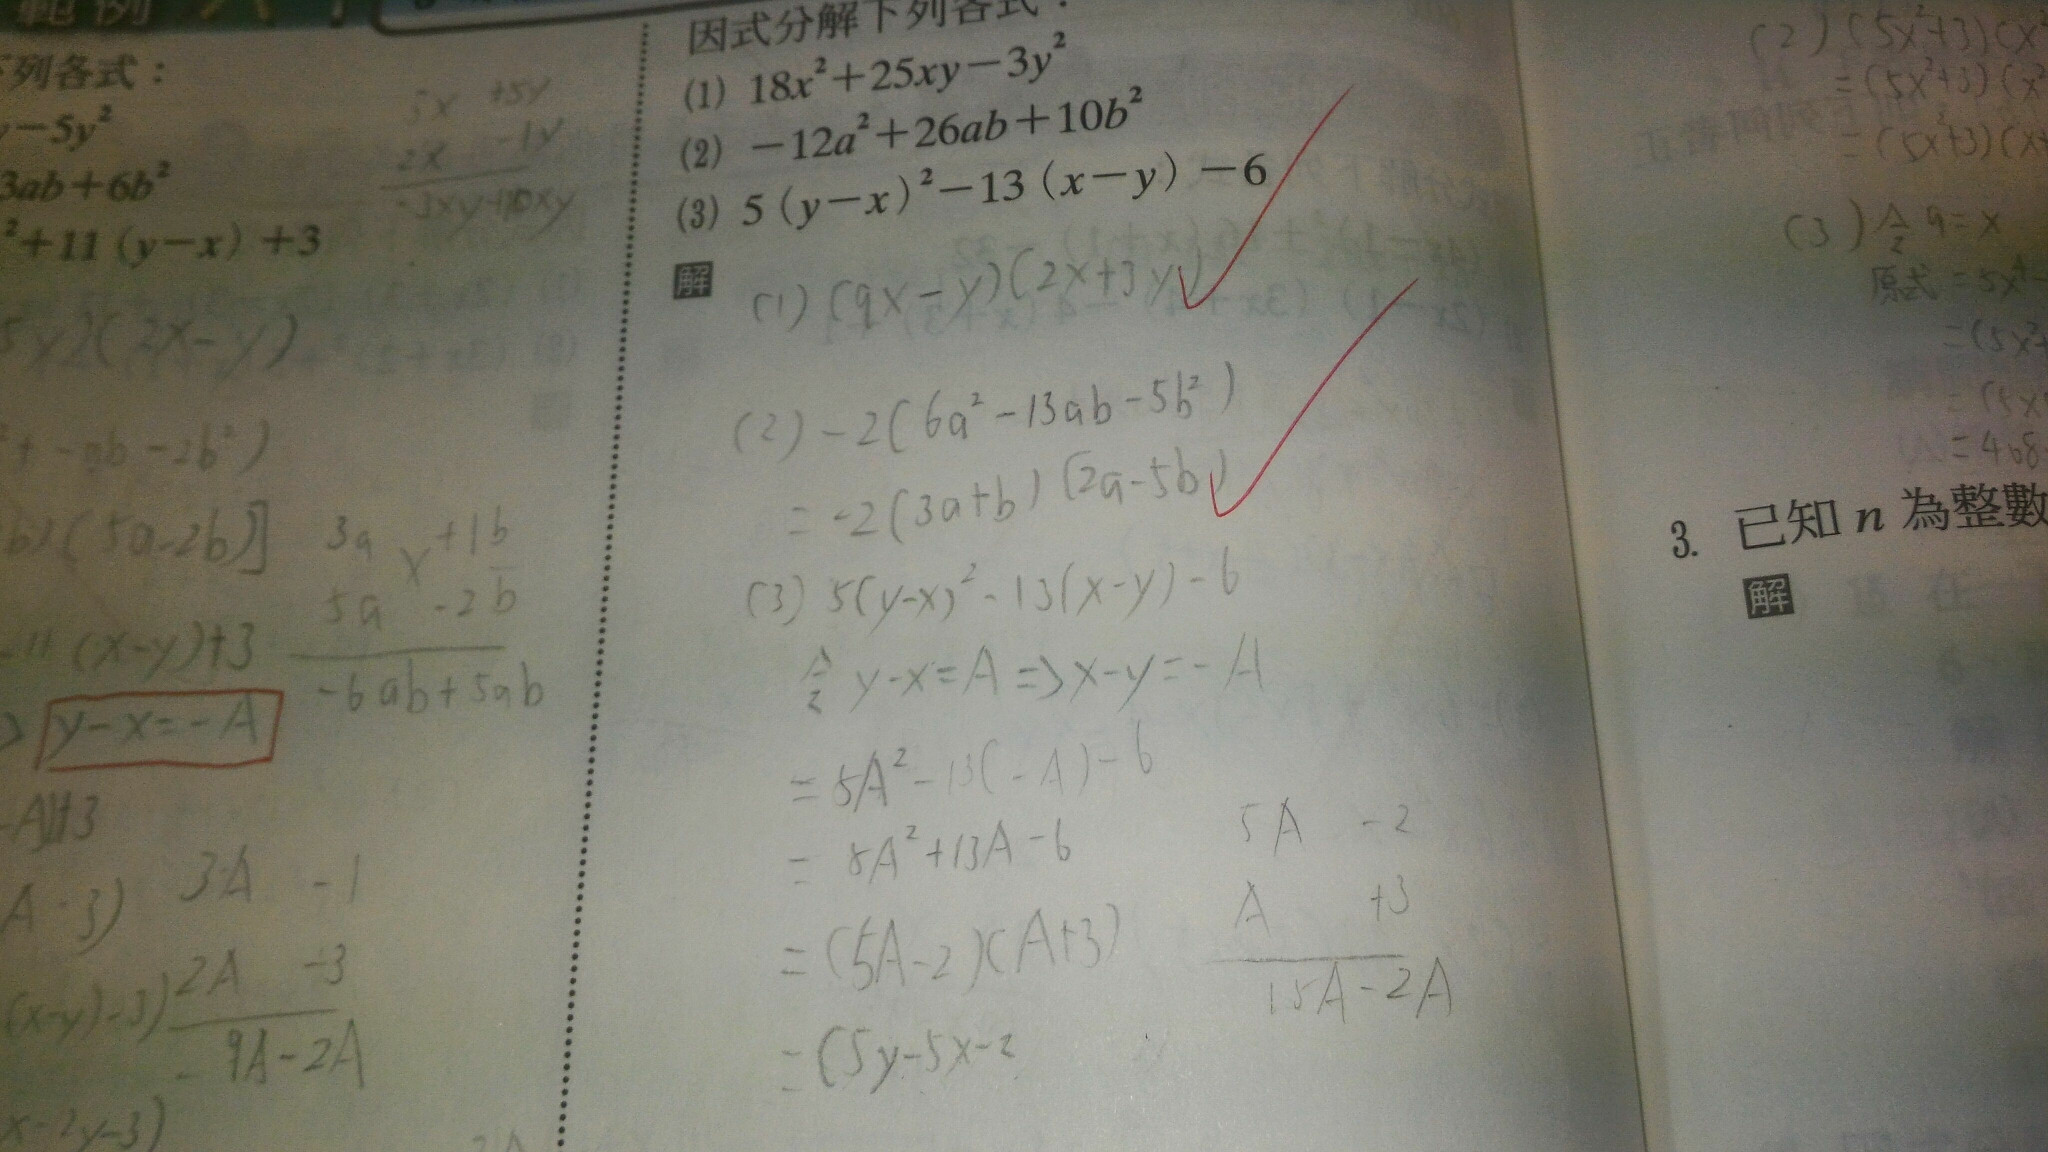 範例
下列各式：
y－5y²
3ab＋6b²
²＋11（y－x）＋3
5x +5y
2x -1y
-2xy+10xy
5y)(2x-y)
²+-ab-2b²)
b)(5a-2b)]
3a +1b
x
5a -2b
-6ab+5ab
-11(x-y)+3
y-x=-A
-A)+3
A-3)
3A -1
2A -3
(x-y)-3)
-9A-2A
x-2y-3)
2A
因式分解下列各式：
(1) 18x²＋25xy－3y²
(2) －12a²＋26ab＋10b²
(3) 5（y－x）²－13（x－y）－6
解
(1) (9x-y)(2x+3y)
(2) -2(6a²-13ab-5b²)
= -2(3a+b)(2a-5b)
(3) 5(y-x)²-13(x-y)-6
令 y-x=A => x-y=-A
= 5A²-13(-A)-6
= 5A²+13A-6
= (5A-2)(A+3)
= (5y-5x-2
5A -2
A +3
15A-2A
(2) (5x²+3)(x²
= (5x²+3)(x²
= (5x²+3)(x+
(3) 令 a=x
原式 = 5x⁴-
= (5x²+
= (5x
= 468
3. 已知 n 為整數
解